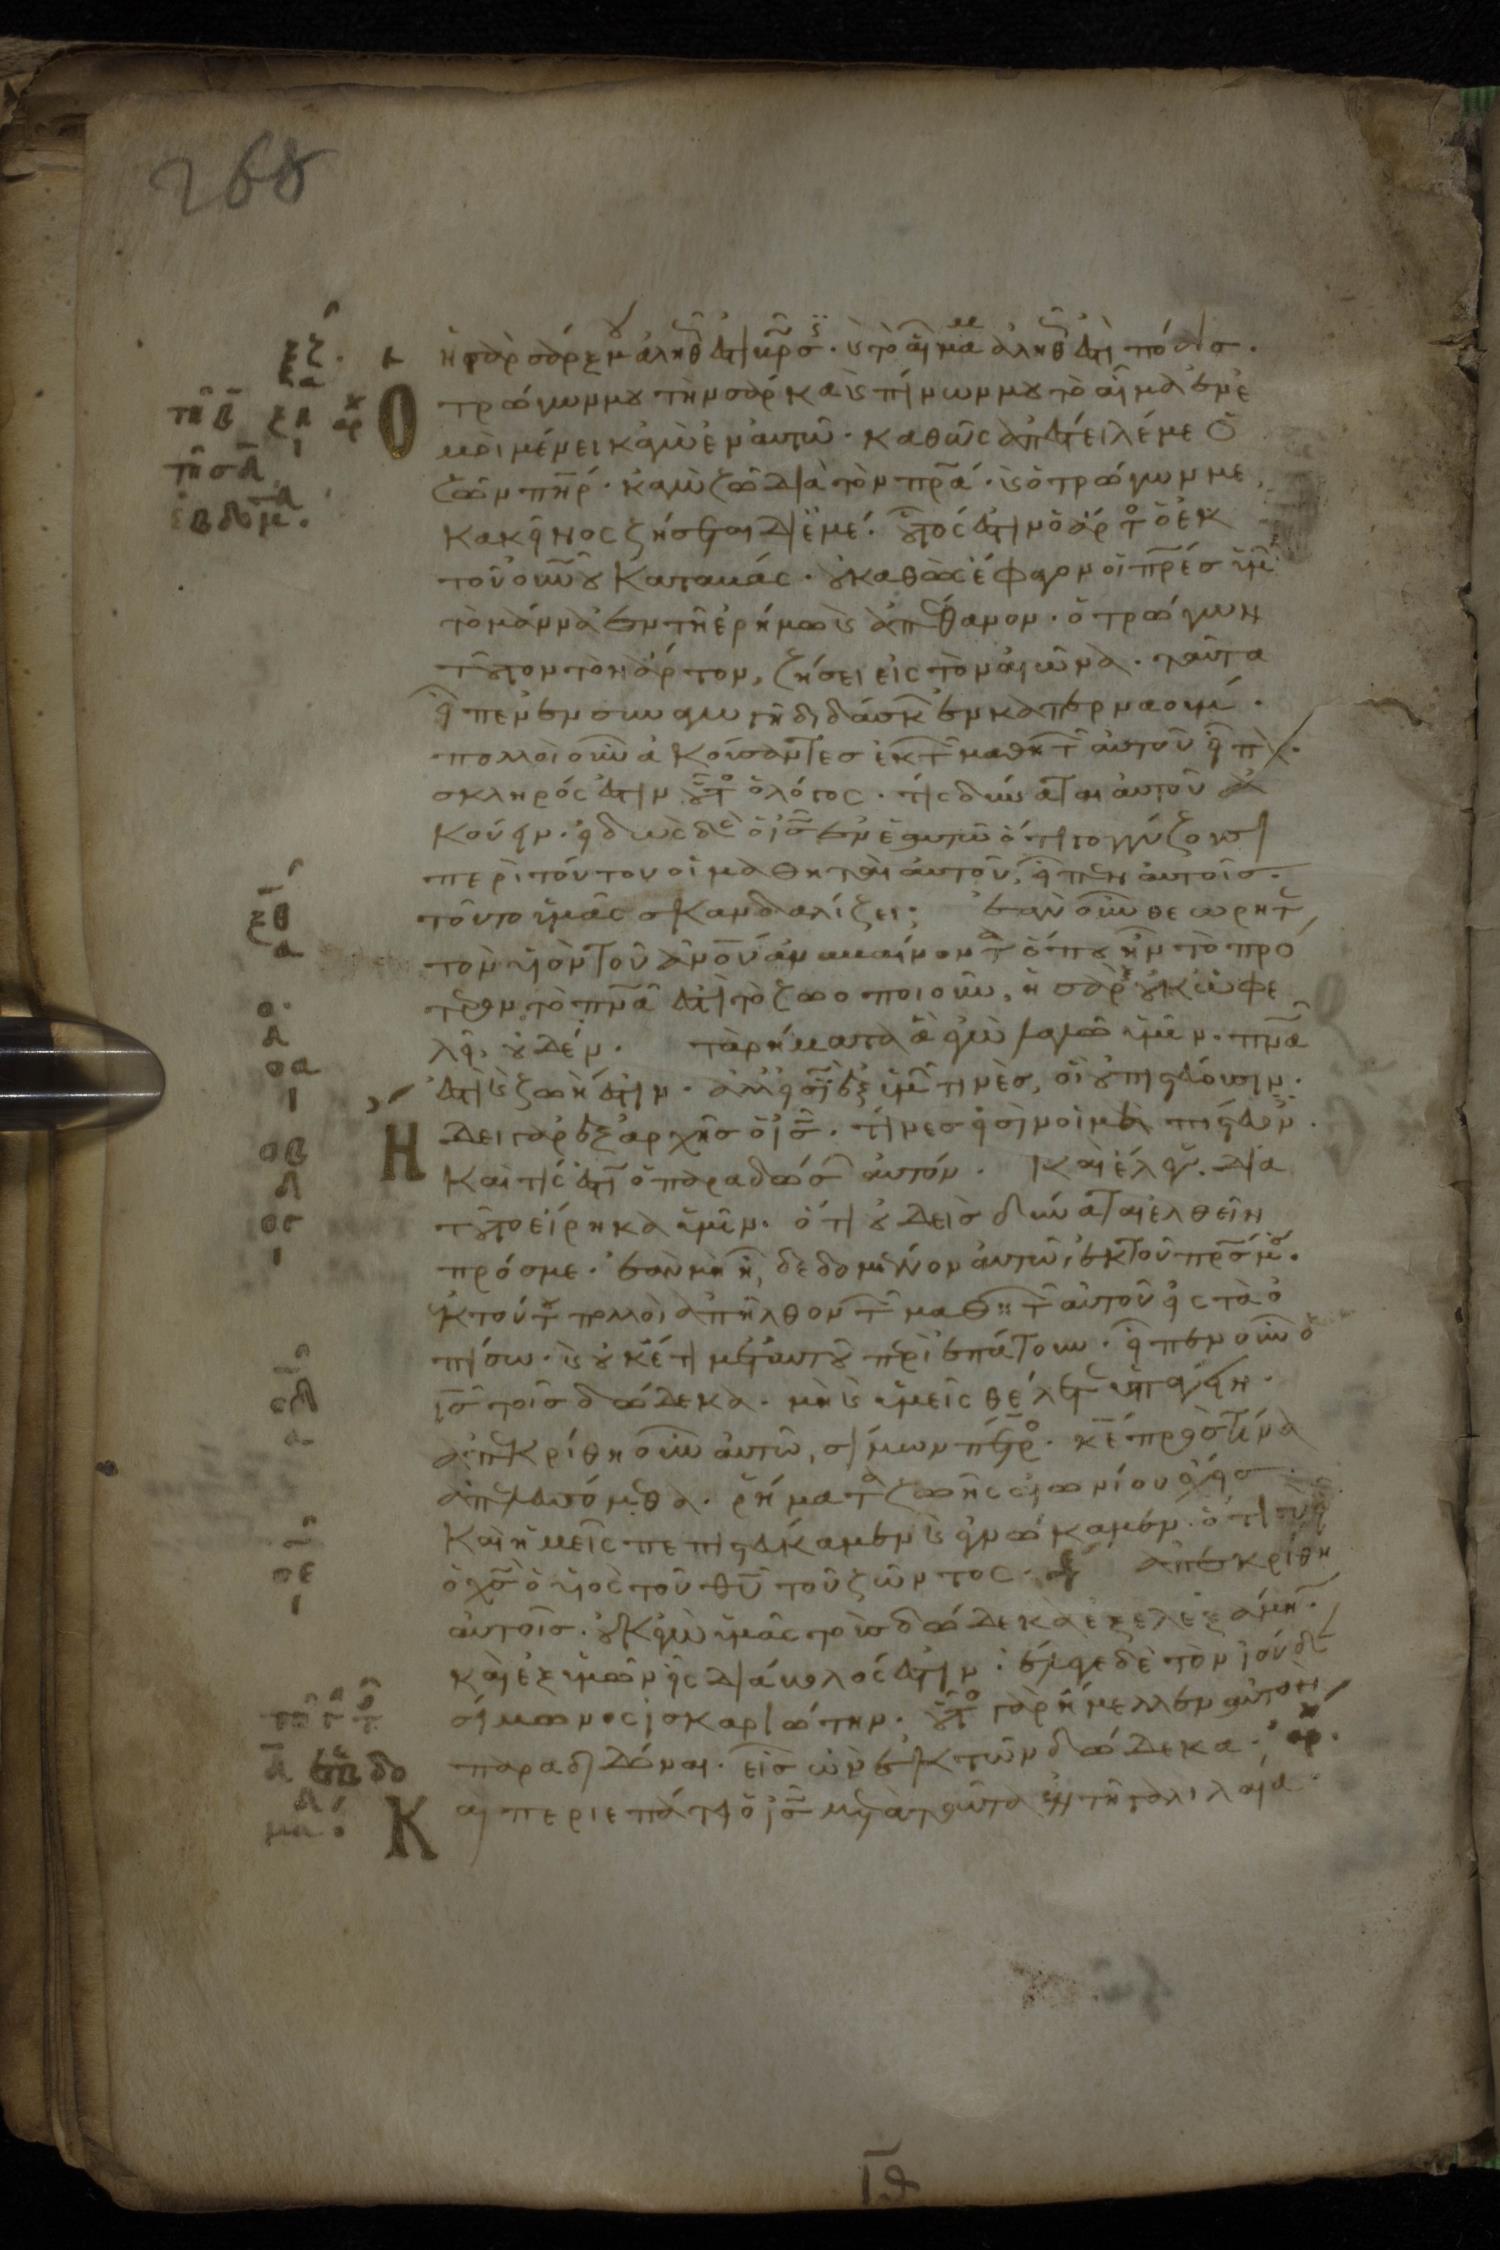 268
ξζ
ἡ γὰρ σάρξ μου ἀληθῶς ἐστι βρῶσις· κ τὸ αἷμά μου ἀληθῶς ἐστι πόσις·
τῇ β ξη αρ
Ο τρώγων μου τὴν σάρκα κ πίνων μου τὸ αἷμα ἐν ἐ
μοὶ μένει κἀγὼ ἐν αὐτῶ· καθὼς ἀπέστειλέ με ὁ
τῆς Δ
ζῶν πηρ· κἀγὼ ζῶ διὰ τὸν πρα· κ ὁ τρώγων με,
ἑβδομ
κακεῖνος ζήσεται δι ἐμέ· οὗτός ἐστιν ὁ ἄρτος ὁ ἐκ
τοῦ οὐνου καταβάς· οὐ καθὼς ἔφαγον οἱ πρες ὑμῶν
τὸ μάννα ἐν τῇ ἐρήμω κ ἀπέθανον· ὁ τρώγων
τοῦτον τὸν ἄρτον, ζήσει εἰς τὸν αἰῶνα· ταῦτα
εἶπεν ἐν συναγωγῇ διδάσκων ἐν καπερναούμ·
πολλοὶ οὖν ἀκούσαντες ἐκ τῶν μαθητῶν αὐτοῦ εἶπον·
σκληρός ἐστιν οὗτος ὁ λόγος· τίς δύναται αὐτοῦ ἀ
κούειν· εἰδὼς δὲ ὁ ις ἐν ἑαυτῶ ὅτι γογγύζουσι
περὶ τούτου οἱ μαθηταὶ αὐτοῦ, εἶπεν αὐτοῖς·
ξθ
τοῦτο ὑμᾶς σκανδαλίζει; ἐὰν οὖν θεωρῆτε
α
τὸν υἱὸν τοῦ ανου ἀναβαίνοντα ὅπου ἦν τὸ πρό
τερον· τὸ πνα ἐστι τὸ ζωοποιοῦν, ἡ σὰρξ οὐκ ὠφε
ο
λεῖ οὐδέν· τὰ ῥήματα ἃ ἐγὼ λαλῶ ὑμῖν· πνα
οα
ἐστι κ ζωή ἐστιν· ἀλλ εἰσὶν ἐξ ὑμῶν τινὲς, οἳ οὐ πιστεύουσιν·
ι
Η δει γὰρ ἐξ ἀρχῆς ὁ ις· τίνες εἰσὶν οἱ μὴ πιστεύοντες·
οβ
καὶ τίς ἐστιν ὁ παραδώσων αὐτόν· καὶ ἔλεγεν· διὰ
ογ
τοῦτο εἴρηκα ὑμῖν· ὅτι οὐδεὶς δύναται ἐλθεῖν
ι
πρός με· ἐὰν μὴ ἦ δεδομένον αὐτῶ ἐκ τοῦ πρς μου·
ἐκ τούτου πολλοὶ ἀπῆλθον τῶν μαθητῶν αὐτοῦ εἰς τὰ ὀ
πίσω· κ οὐκέτι μετ αὐτοῦ περιεπάτουν· εἶπεν οὖν ὁ
οδ
ις τοῖς δώδεκα· μὴ κ ὑμεῖς θέλετε ὑπάγειν·
α
ἀπεκρίθη οὖν αὐτῶ, σίμων πέτρος· κε πρὸς τίνα
ἀπελευσόμεθα· ῥήματα ζωῆς αἰωνίου ἔχεις·
καὶ ἡμεῖς πεπιστεύκαμεν κ ἐγνώκαμεν· ὅτι σὺ εἶ
οε
ὁ χς ὁ υἱὸς τοῦ θυ τοῦ ζῶντος· ἀπεκρίθη
ι
αὐτοῖς· οὐκ ἐγὼ ὑμᾶς τοὺς δώδεκα ἐξελεξάμην·
καὶ ἐξ ὑμῶν εἷς διάβολός ἐστιν· ἔλεγε δὲ τὸν ἰούδαν
σίμωνος ἰσκαριώτην· οὗτος γὰρ ἤμελλεν αὐτὸν
παραδιδόναι· εἷς ὢν ἐκ τῶν δώδεκα· αρ.
Κ αὶ περιεπάτει ὁ ις μετὰ ταῦτα ἐν τῇ γαλιλαία·
ΙΘ